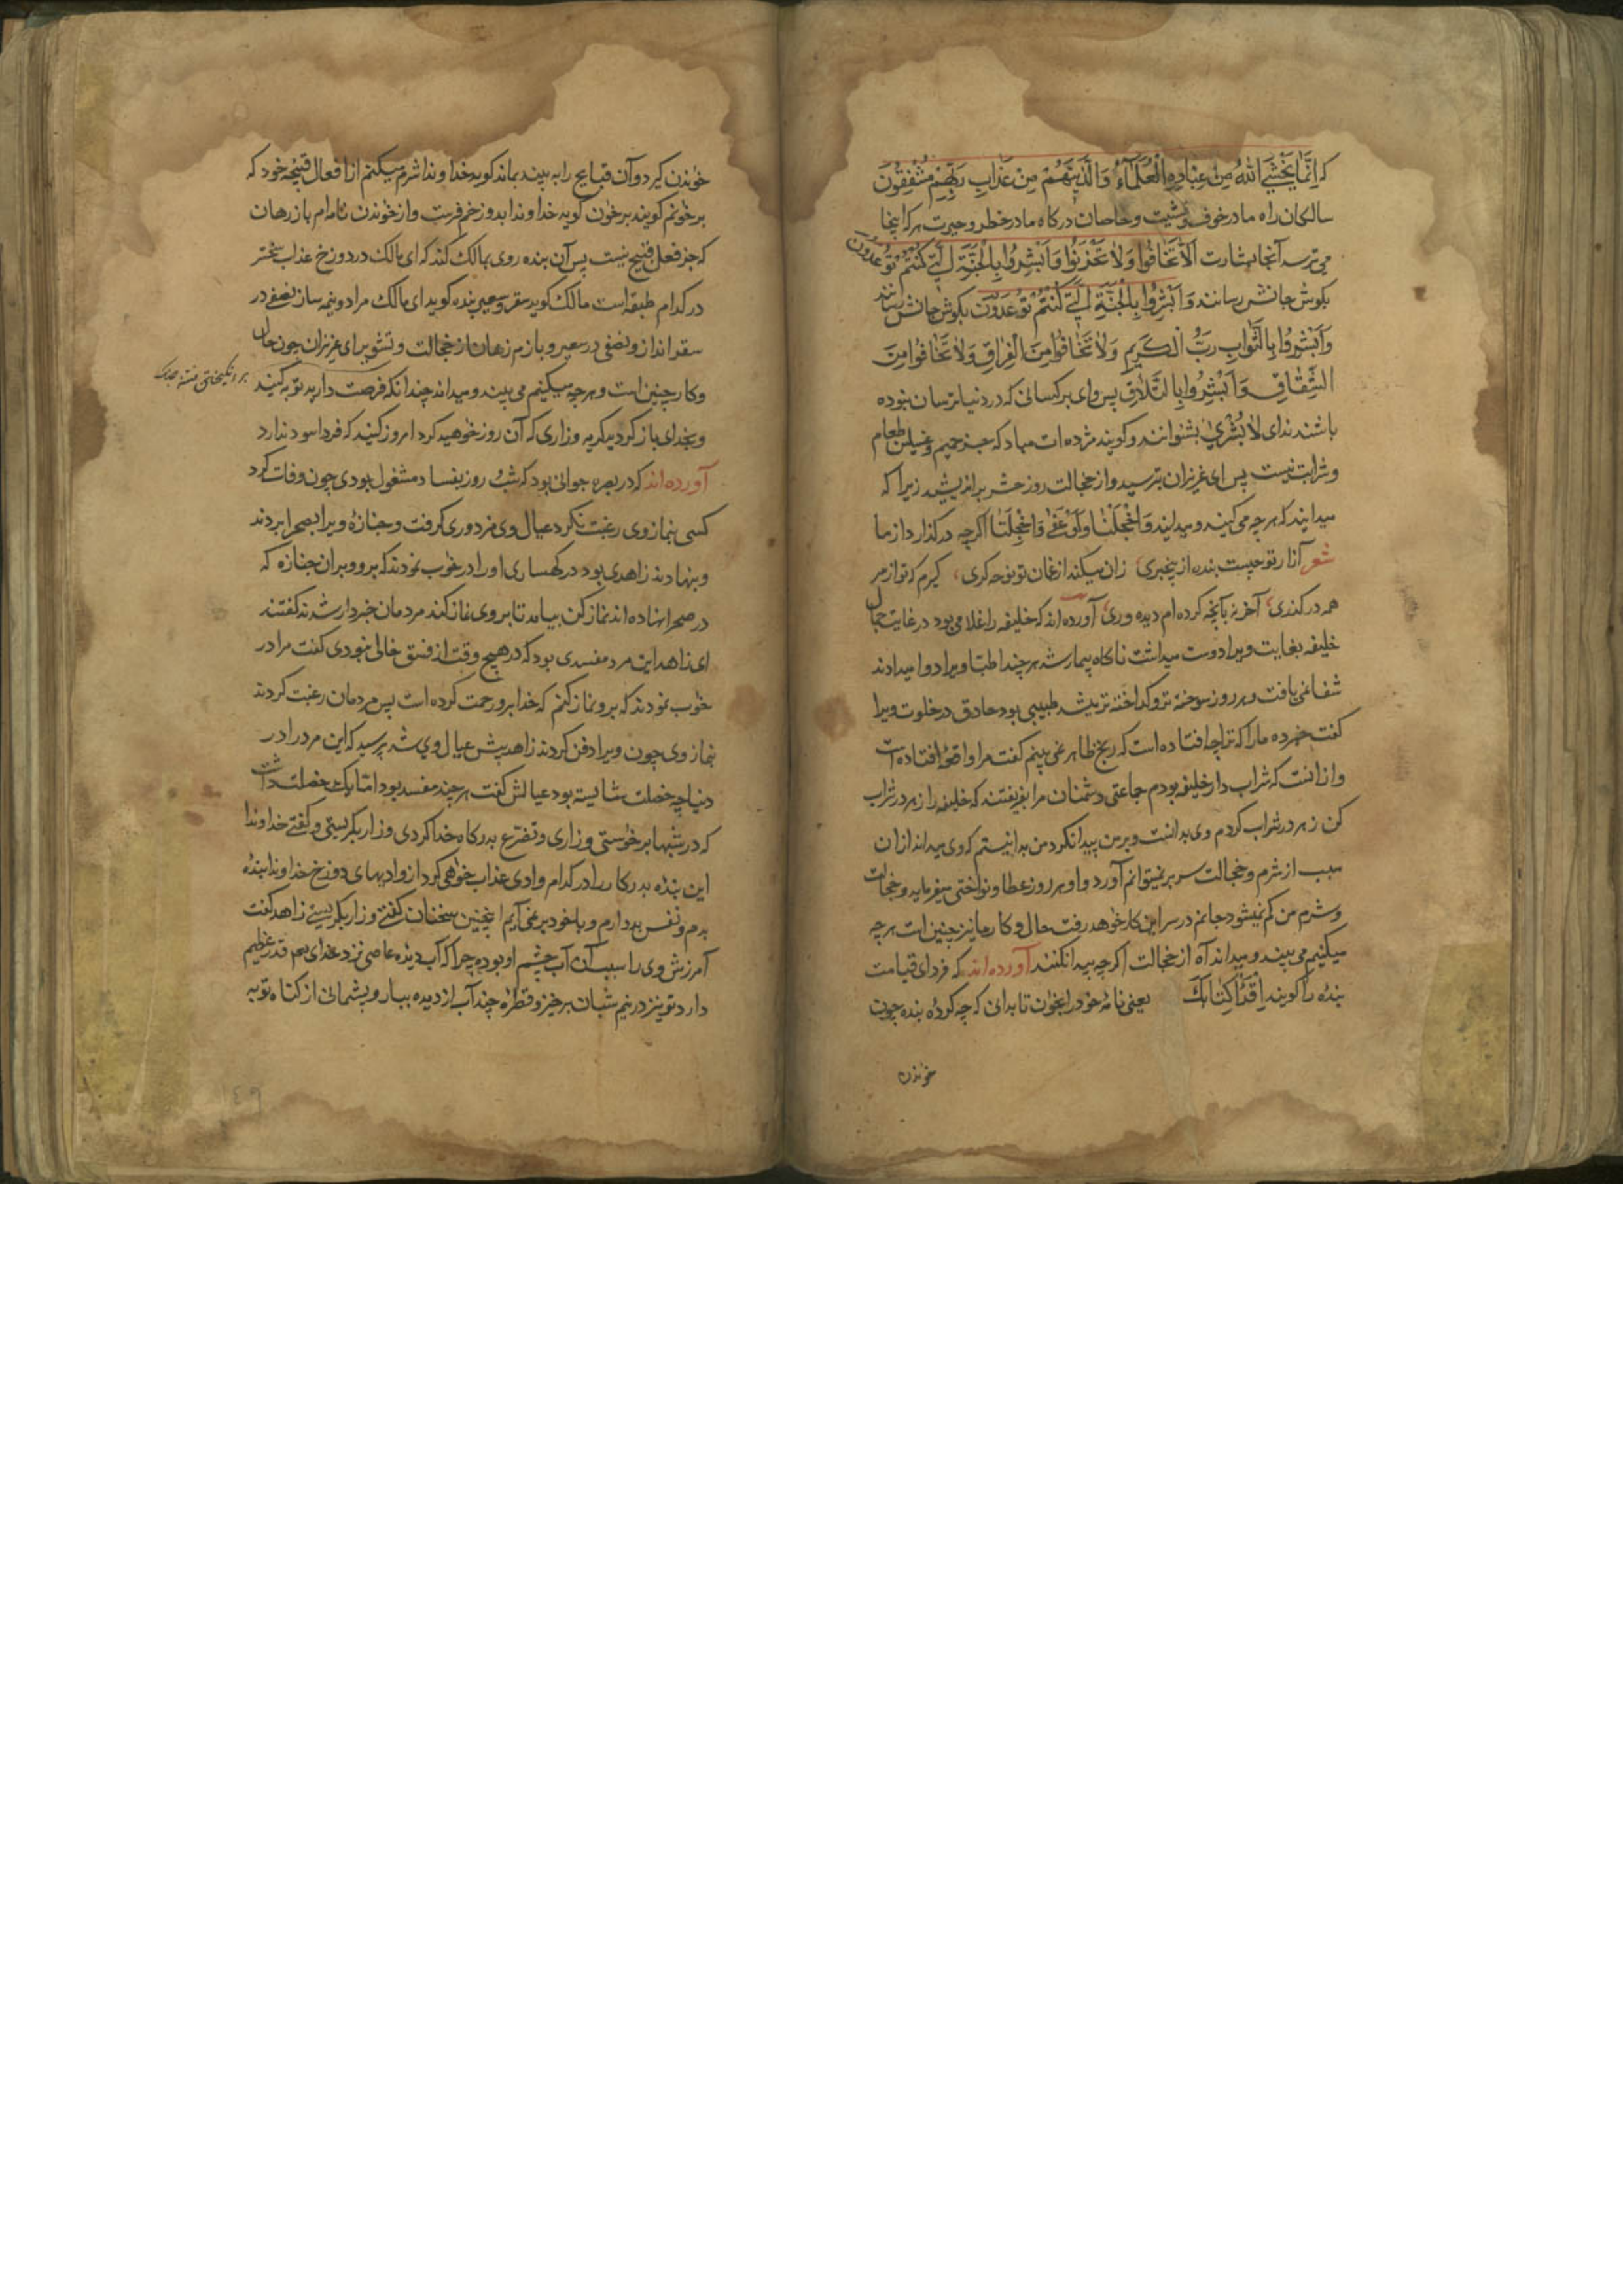 که اِنَّمَا یَخْشَی اللّٰهَ مِنْ عِبَادِهِ الْعُلَمٰٓاءُ وَالَّذِینَ هُمْ مِنْ عَذَابِ رَبِّهِمْ مُشْفِقُونَ
سالکان راه ما در خوف و خشیت و خاصان درکاه ما در خطر و حیرت هر که اینجا
می ترسد آنجا بشارت اَلَّا تَخَافُوا وَلَا تَحْزَنُوا وَاَبْشِرُوا بِالْجَنَّةِ الَّتِی کُنْتُمْ تُوعَدُونَ
بکوش جانش رسانند وَاَبْشِرُوا بِالْجَنَّةِ الَّتِی کُنْتُمْ تُوعَدُونَ بکوش جانش رسانند
وَاَبْشِرُوا بِالثَّوَابِ رَبِّ الْکَرِیمِ وَلَا تَخَافُوا مِنَ الْفِرَاقِ وَلَا تَخَافُوا مِنَ
الشِّقَاقِ وَاَبْشِرُوا بِالتَّلَاقِ پس وای بر کسانی که در دنیا ترسان نبوده
باشند ندای لَا بُشْرٰی بشنوانند و کویند مژده ات مباد که جز حمیم و غسلین طعام
و شرابت نیست پس ای عزیزان بترسید و از خجالت روز حشر براندیشید زیرا که
میدانید که هر چه می کنید و میدانید وَاخَجْلَتَا وَلَوْ عَفٰی وَاخَجْلَتَا اکرچه درکذارد از ما
شعر آزار تو چیست بنده از بیخبری زان میکند از غمان تو نوحه کری، کیرم که تو از سر
همه درکذری، آخر نه بآنچه کرده ام دیده وری، آورده اند که خلیفه را غلامی بود در غایت جمال
خلیفه بغایت ویرا دوست میداشت ناکاه بیمار شد هر چند اطبا ویرا دوا میدادند
شفا نمی یافت و هر روز سوخته تر و کداخته تر میشد طبیبی بود حاذق در خلوت ویرا
کفت خبر ده ما را که ترا چه افتاده است که رنج ظاهر نمی بینم کفت مرا واقعهٔ افتاده است
و از آنست که شراب دار خلیفه بودم جماعتی دشمنان مرا بفریفتند که خلیفه را زهر در شراب
کن زهر در شراب کردم وی بدانست و بر من پیدا نکرد من بدانستم که وی میداند از آن
سبب از شرم و خجالت سر بر نمیتوانم آورد و او هر روز عطا و نواختی میفرماید و خجالت
و شرم من کم نمیشود جانم در سر این کار خواهد رفت حال و کار ما نیز چنین است هر چه
میکنیم می بیند و میداند آه از خجالت اکرچه پیدا نکنند آورده اند که فردای قیامت
بنده را کویند اِقْرَأْ کِتَابَکَ یعنی نامهٔ خود را بخوان تا بدانی که چه کردهٔ بنده چون
خواندن
خواندن کیرد و آن قبایح را به بیند بماند کوید خداوندا شرم میکنم از افعال قبیحه خود که
برخوانم کویند برخوان کوید خداوندا بدوزخم فرست و از خواندن نامه ام باز رهان
که جز فعل قبیح نیست پس آن بنده روی بمالک کند که ای مالک در دوزخ عذاب سختر
در کدام طبقه است مالک کوید سقر و سعیر بنده کوید ای مالک مرا دو نیمه ساز نصفی در
سقر انداز و نصفی در سعیر و بازم رهان از خجالت و تشویر ای عزیزان چون حال
و کار چنین است و هر چه میکنیم می بیند و میداند چندانکه فرصت دارید توبه کنید
بر انکیختن فتنه
و بخدای باز کردید کریه و زاری که آن روز خواهید کرد امروز کنید که فردا سود ندارد
آورده اند که در بصره جوانی بود که شب و روز بفساد مشغول بودی چون وفات کرد
کسی بنماز وی رغبت نکرد عیال وی مزدوری کرفت و جنازه ویرا بصحرا بردند
و بنهادند زاهدی بود در کهساری او را در خواب نمودند که برو و بران جنازه که
در صحرا نهاده اند نماز کن بیامد تا بر وی نماز کند مردمان خبردار شدند کفتند
ای زاهد این مرد مفسدی بود که در هیچ وقت از فسق خالی نبودی کفت مرا در
خواب نمودند که برو نماز کنم که خدا برو رحمت کرده است پس مردمان رغبت کردند
بنماز وی چون ویرا دفن کردند زاهد پیش عیال وی شد پرسید که این مرد را در
دنیا چه خصلت شایسته بود عیالش کفت هر چند مفسد بود اما یک خصلت داشت
که در شبها برخواستی و زاری و تضرع بدرکاه خدا کردی و زار بکریستی و کفتی خداوندا
این بندهٔ بدرکار را در کدام وادی عذاب خواهی کرد از وادیهای دوزخ خداوندا بندهٔ
بدم و نفس بد دارم و با خود بر نمی آیم اینچنین سخنان کفتی و زار بکریستی زاهد کفت
آمرزش وی را سبب آن آب چشم او بوده چرا که آب دیدهٔ عاصی نزد خدای هم قدر عظیم
دارد تو نیز در نیم شبان برخیز و قطرهٔ چند آب از دیده ببار و پشمانی از کناه توبه